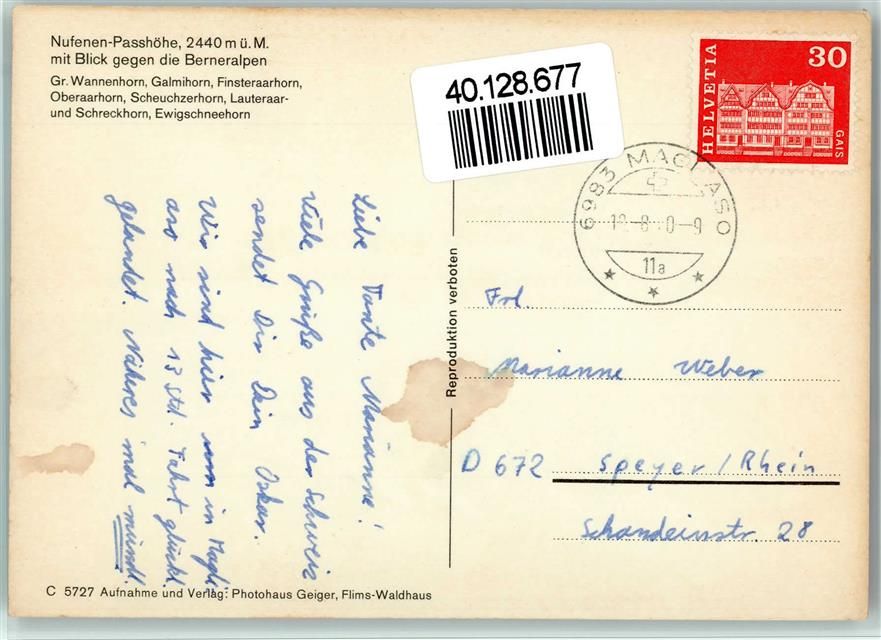 Nufenen-Passhöhe, 2440 m ü. M.
mit Blick gegen die Berneralpen
Gr. Wannenhorn, Galmihorn, Finsteraarhorn,
Oberaarhorn, Scheuchzerhorn, Lauteraar-
und Schreckhorn, Ewigschneehorn
40.128.677
HELVETIA
30
GAIS
6983 MAGLIASO
11a
Liebe Tante Marianne!
Viele Grüße aus der Schweiz
sendet Dir Dein Oskar.
Wir sind hier in
aso nach 13 Std. Fahrt glückl.
gelandet. Näheres mal mündl.
Reproduktion verboten
Frl.
Marianne Weber
D 672 Speyer/Rhein
Schandeinstr. 28
C 5727 Aufnahme und Verlag: Photohaus Geiger, Flims-Waldhaus